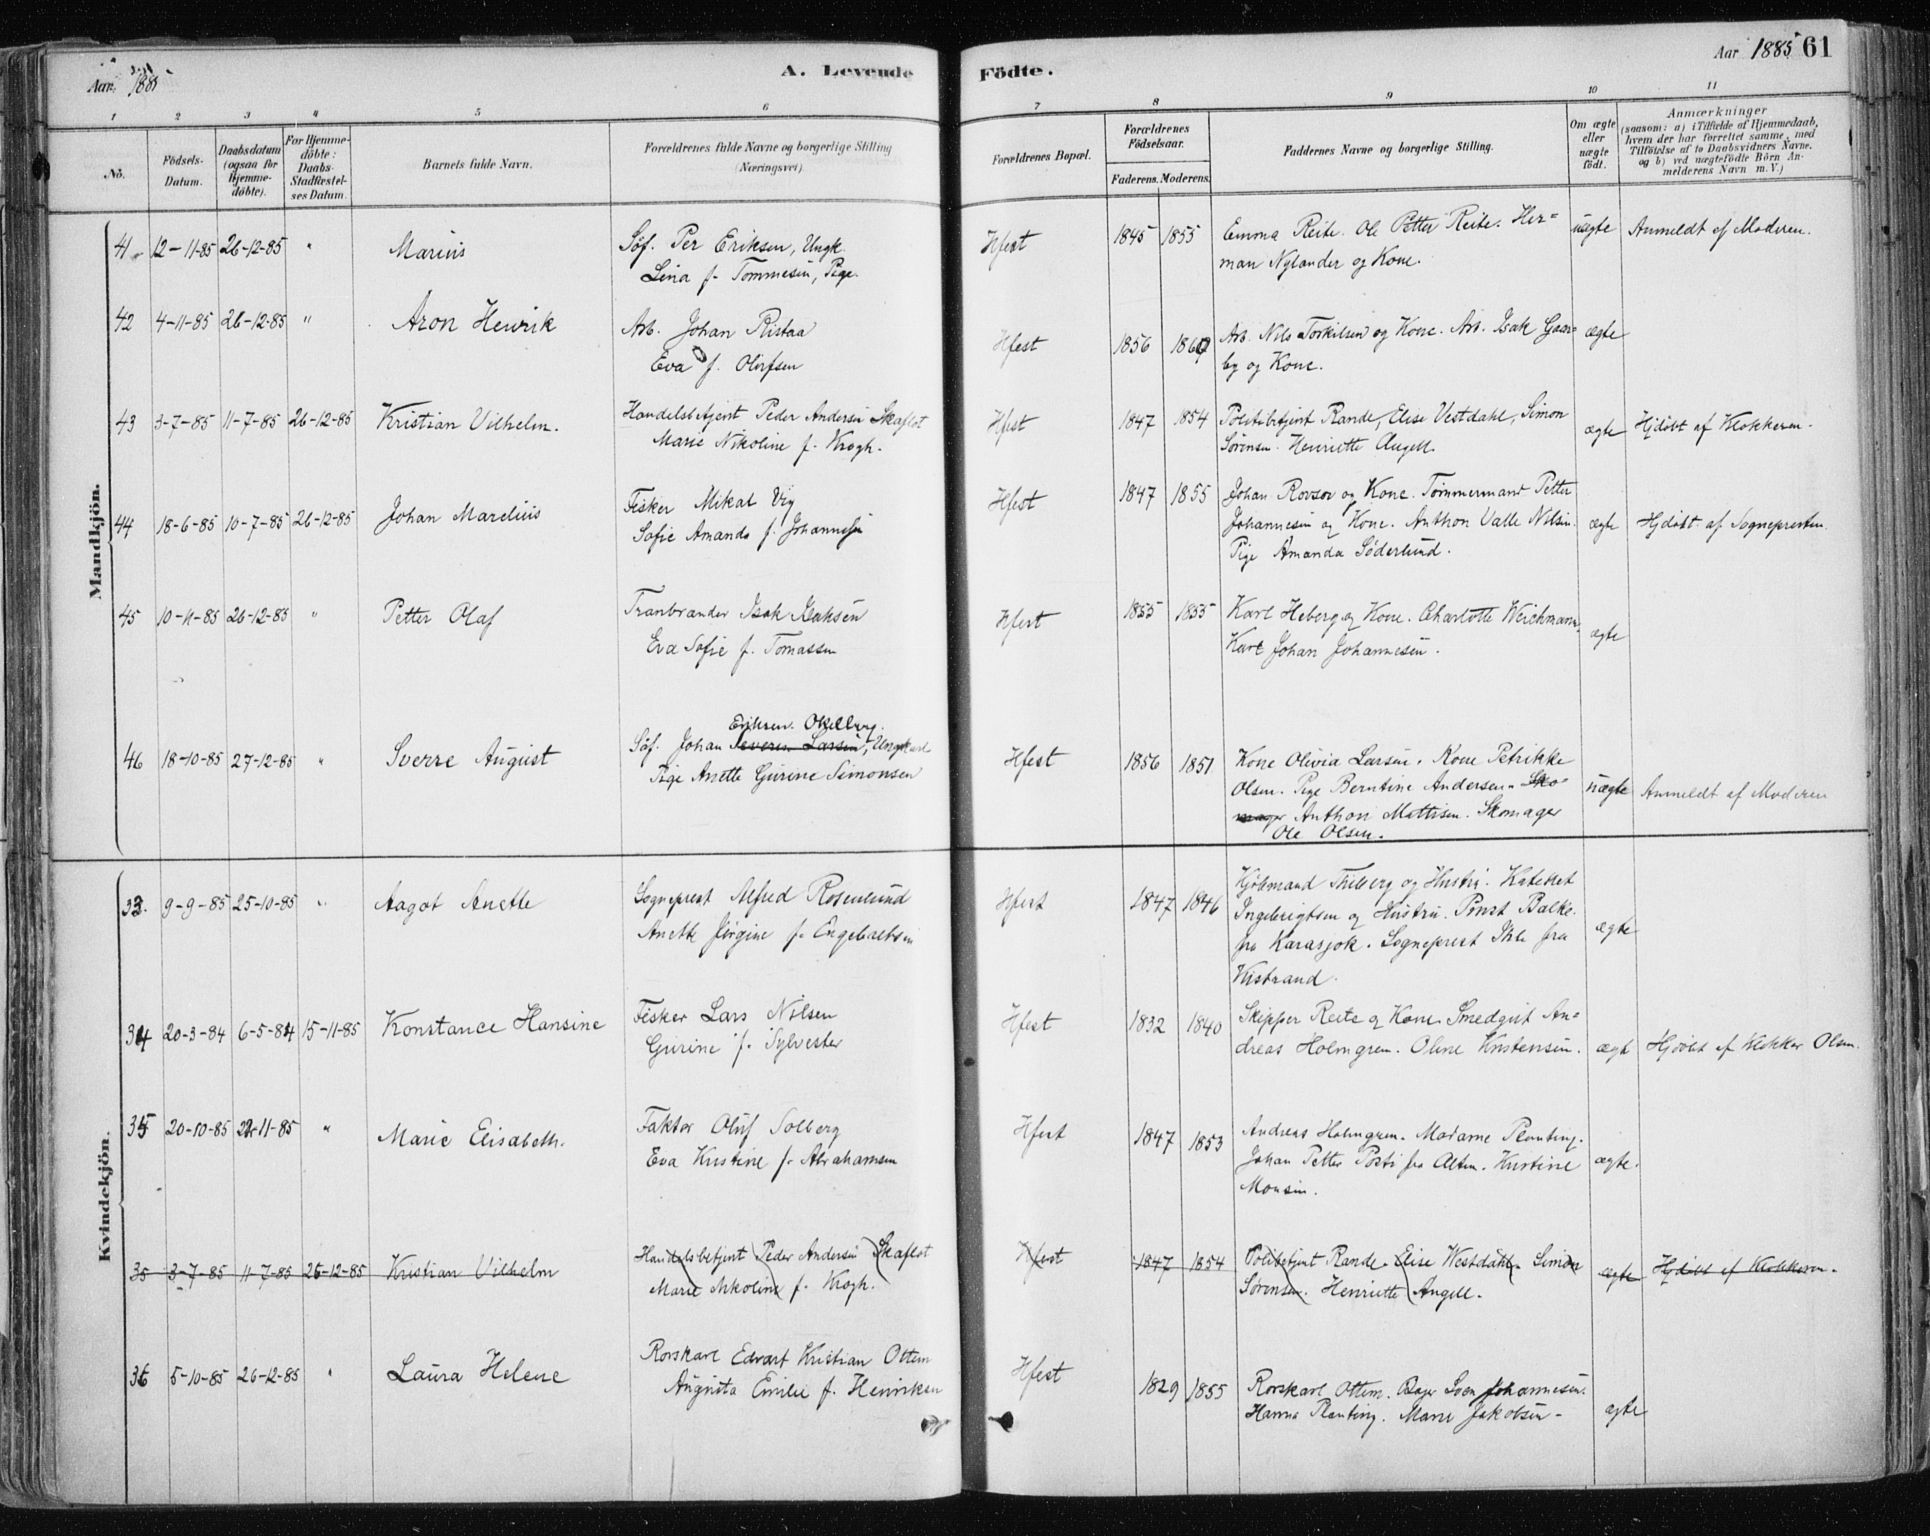 Aar 1885
A. Levende Födte.
Aar 1885 61
1 2 3 4 5 6 7 8 9 10 11
No.
Födsels-Datum.
Daabsdatum (ogsaa for Hjemme-döbte).
For Hjemme-döbte: Daabs-Stadfæstel-ses Datum.
Barnets fulde Navn.
Forældrenes fulde Navne og borgerlige Stilling (Næringsvei)
Forældrenes Bopæl.
Forældrenes Födselsaar.
Faderens. Moderens.
Faddernes Navne og borgerlige Stilling.
Om ægte eller uægte födt.
Anmærkninger
(saasom: a) i Tilfælde af Hjemmedaab,
hvem der har forrettet samme, med
Tilföielse af to Daabsvidners Navne.
og b) ved uægtefödte Börn An-
melderens Navn m. V.)
Mandkjön.
41 12-11-85 26-12-85 " Marius
Söf. Per Eriksen, Ungk.
Lina f. Tommesen, Pige.
Hfest 1845 1855
Emma Reite. Ole Petter Reite. Her=
man Nylander og Kone.
uægte Anmeldt af Moderen.
42 4-11-85 26-12-85 " Aron Henrik
Arb. Johan Ristaa
Eva f. Olufsen
Hfest 1856 1860
Arb. Nils Torkilsen og Kone. Arb. Isak Gam=
by og Kone.
ægte
43 3-7-85 11-7-85 26-12-85 Kristian Vilhelm.
Handelsbetjent Peder Andersen Skaflot
Marie Nikoline f. Krogh.
Hfest 1847 1854
Politibetjent Rande, Elise Vestdahl, Simon
Sørensen. Henriette Angell.
ægte Hjdöbt af Klokkeren.
44 18-6-85 10-7-85 26-12-85 Johan Marelius
Fisker Mikal Vig
Sofie Amanda f. Johannesen
Hfest 1847 1855
Johan Rovsov og Kone. Tömmermand Petter
Johannesen og Kone. Anthon Valle Nilsen.
Pige Amanda Söderlund.
ægte Hjdöbt af Sognepresten.
45 10-11-85 26-12-85 " Petter Olaf
Tranbrænder Isak Isaksen
Eva Sofie f. Tomassen
Hfest 1855 1855
Karl Heberg og Kone. Charlotte Weichmann,
Karl Johan Johannesen.
ægte
46 18-10-85 27-12-85 " Sverre August
Eriksen Okelberg.
Söf. Johan Severin Larsen, Ungkarl
Pige Anette Gurine Simonsen
Hfest 1856 1851
Kone Olivia Larsen. Kone Petrikke
Olsen. Pige Berntine Andersen. Sko-
mager Anthon Mattisen. Skomager
Ole Olsen.
uægte Anmeldt af Moderen
Kvindekjön.
33. 9-9-85 25-10-85 " Aagot Anette
Sogneprest Alfred Rosenlund
Anette Jörgine f. Engebretsen
Hfest 1847 1846
Kjöbmand Friberg og Hustru. Kateket
Ingebrigtsen og Hustru. Prest Balke
fra Karasjok. Sogneprest Ihle fra
Kistrand.
ægte
34 20-3-84 6-5-84 15-11-85 Konstance Hansine
Fisker Lars Nilsen
Gurine f. Sylvester
Hfest 1832 1840
Skipper Reite og Kone. Smedgut An=
dreas Holmgren. Oline Kristensen.
ægt Hjdöbt af Klokker Olsen.
35 20-10-85 22-11-85 " Marie Elisabeth.
Faktor Oluf Solberg
Eva Kristine f. Abrahamsen
Hfest 1847 1853
Andreas Holmgren. Madame Planting.
Johan Petter Posti fra Alten. Kristine
Monsen.
ægte.
35 3-7-85 11-7-85 26-12-85 Kristian Vilhelm
Handelsbetjent Peder Andersen Skaflot
Marie Nikoline f. Krogh.
Hfest 1847 1854
Politibetjent Rande. Elise Westdahl. Simon
Sørensen. Henriette Angell.
ægte Hjdöbt af Klokkeren.
36 5-10-85 26-12-85 " Laura Helene
Rorskarl Edvart Kristian Ottem
Augusta Emilie f. Henriksen
Hfest 1829 1855
Rorskarl Ottem. Bager Sven Johannesen.
Hanna Planting. Marie Jakobsen.
ægte